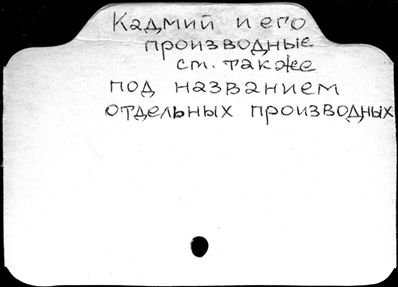 Кадмий и его
производные
см. также
под названием
отдельных производных